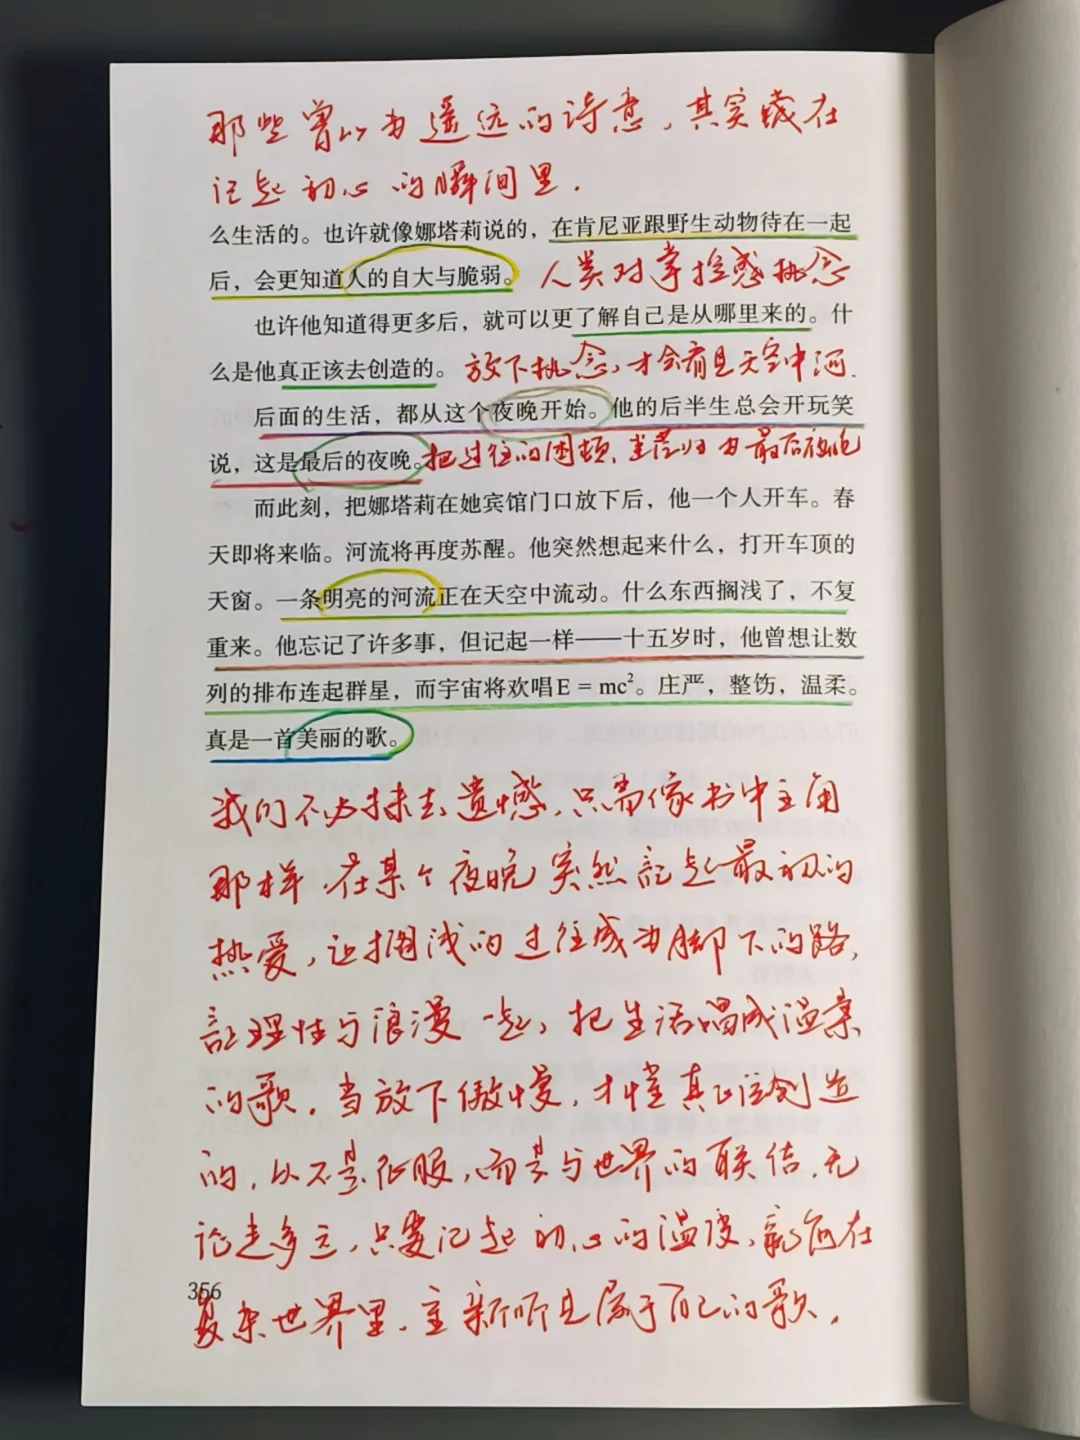 那些曾以为遥远的诗意，其实藏在
记起初心的瞬间里.
么生活的。也许就像娜塔莉说的，在肯尼亚跟野生动物待在一起
后，会更知道人的自大与脆弱。 人类对掌控感执念
也许他知道得更多后，就可以更了解自己是从哪里来的。什
么是他真正该去创造的。 放下执念，才会看见天空中河.
后面的生活，都从这个夜晚开始。他的后半生总会开玩笑
说，这是最后的夜晚。把过往的困顿，归为最后夜晚
而此刻，把娜塔莉在她宾馆门口放下后，他一个人开车。春
天即将来临。河流将再度苏醒。他突然想起来什么，打开车顶的
天窗。一条明亮的河流正在天空中流动。什么东西搁浅了，不复
重来。他忘记了许多事，但记起一样——十五岁时，他曾想让数
列的排布连起群星，而宇宙将欢唱E = mc²。庄严，整饬，温柔。
真是一首美丽的歌。
我们不必抹去遗憾，只需像书中主角
那样，在某个夜晚突然記起最初的
热爱，让搁浅的过往成为脚下的路，
記理性与浪漫一起，把生活唱成温柔
的歌。当放下傲慢，才懂真正该创造
的，从不是征服，而是与世界的联结.无
论走多远，只要记起初心的温度，就能在
复杂世界里.重新听见属于自己的歌.
356